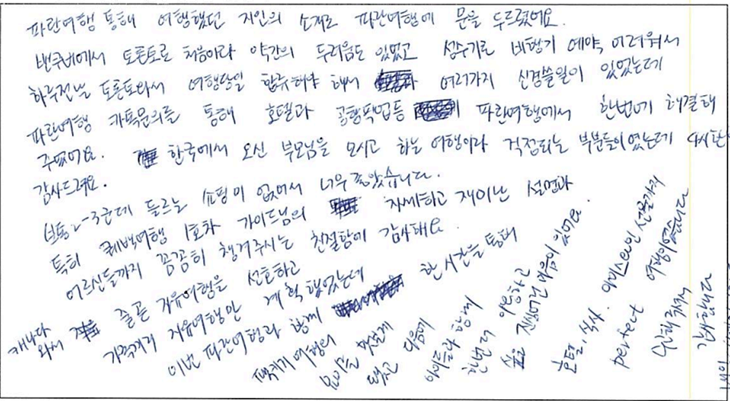 파란여행 통해 여행했던 지인의 소개로 파란여행에 문을 두드렸어요.
밴쿠버에서 토론토로 처음이라 약간의 두려움도 있었고 성수기로 비행기 예약 어려워서
하루전날 토론토와서 여행당일 합류해야 해서 여러가지 신경쓸일이 있었는데
파란여행 카톡문의를 통해 호텔과 공항픽업등 파란여행에서 한번에 해결해
주었어요. 한국에서 오신 부모님을 모시고 하는 여행이라 걱정되는 부분들이었는데 다시한번
감사드려요.
보통 2~3군데 들르는 쇼핑이 없어서 너무 좋았습니다.
특히 퀘백여행 1호차 가이드님의 자세하고 재미난 설명과
어르신들까지 꼼꼼히 챙겨주시는 친절함에 감사해요.
캐나다 와서 줄곧 자유여행을 선호하고
가족끼리 자유여행만 계획했었는데
이번 파란여행과 함께 한 시간을 통해
패키지 여행의
묘미를 맛보게
됐고 다음에
아이들과 함께
한번더 이용하고
싶은 마음이 있어요.
호텔, 식사, 아이스와인 선물까지
perfect 여행이었습니다
감사합니다